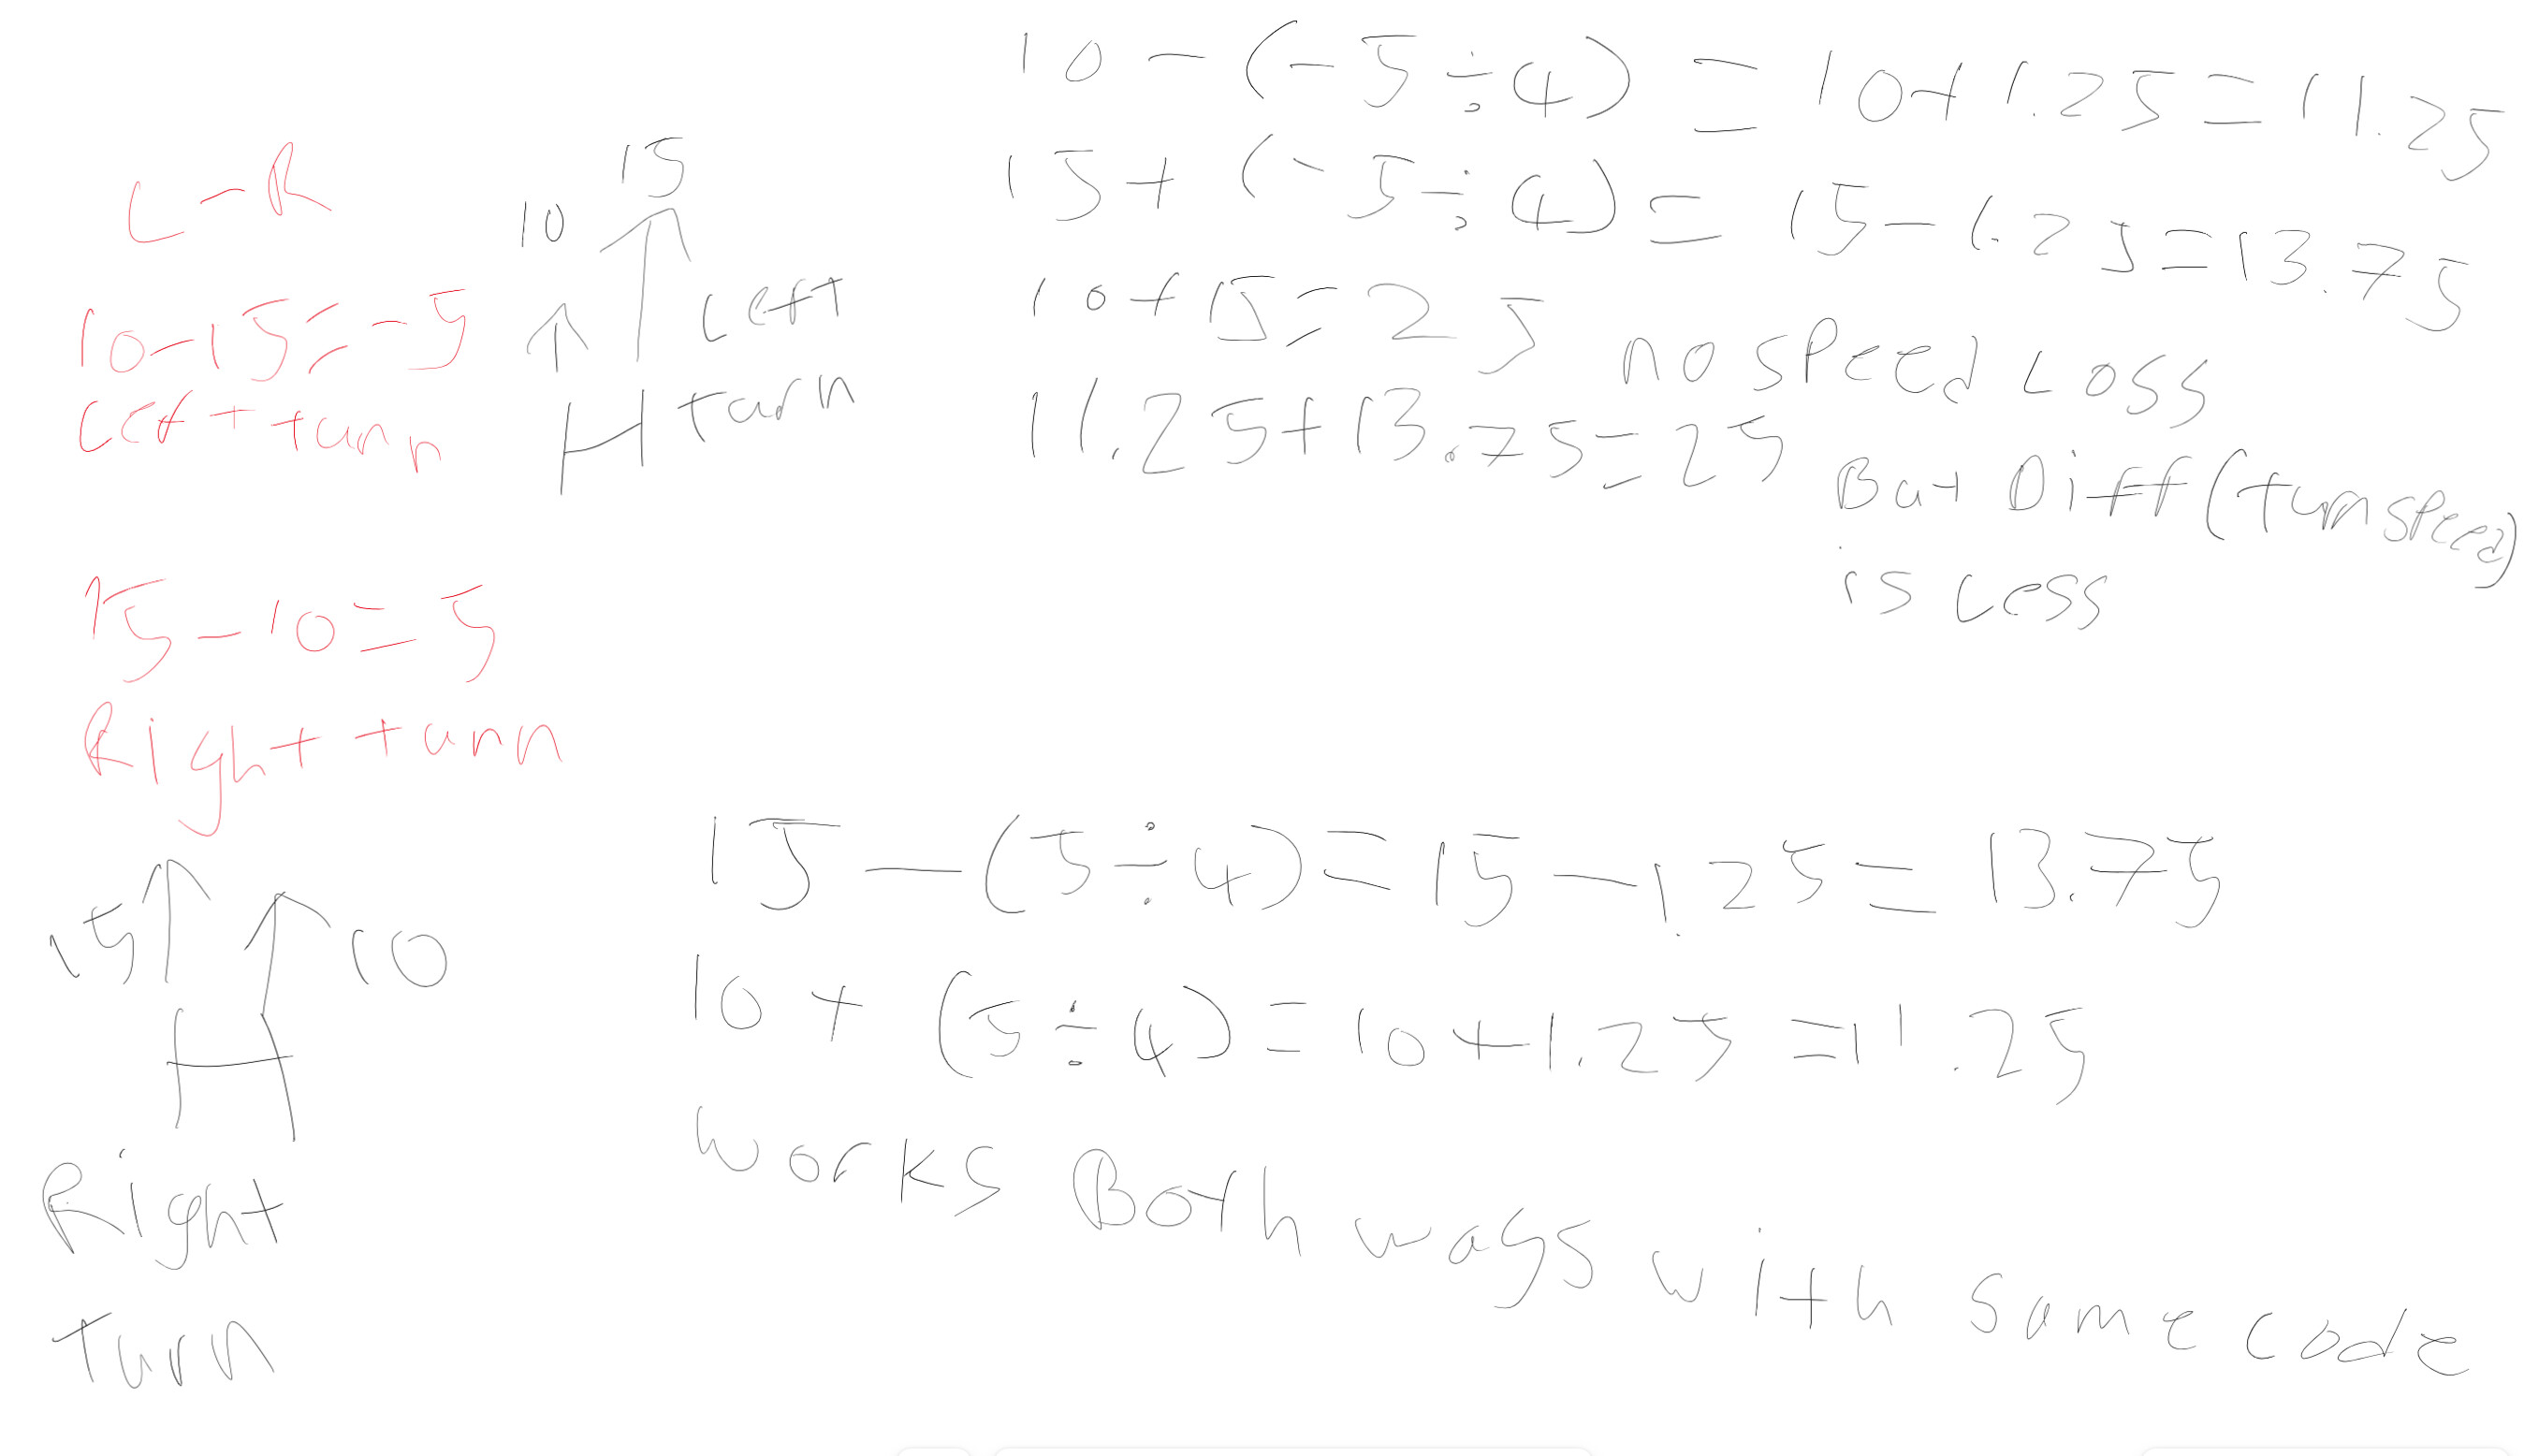 L-R
10-15=-5
Left turn
15-10=5
Right turn
15
10
Left
turn
10-(-5÷4)=10+1.25=11.25
15+(-5÷4)=15-1.25=13.75
10+15=25
11.25+13.75=25
no speed Loss
But Diff (turn speed)
is Less
15
10
H
Right
turn
H
15-(5÷4)=15-1.25=13.75
10+(5÷4)=10+1.25=11.25
works Both ways with same code